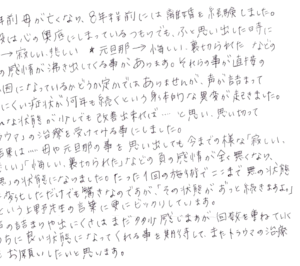 年前母が亡くなり、8年程前には離婚を経験しました。
は心の奥底にしまっているつもりでも、ふと思い出した時に
→寂しい、悲しい ★元旦那→悔しい、裏切られた などの
の感情が沸き出してくる事があります。それらの事が直接の
因になっているかどうか定かではありませんが、声が詰まって
にくい症状が何年も続くという身体的な異常が起きました。
な状態が少しでも改善出来れば…と思い、思い切って
ウマの治療を受けてみる事にしました。
果は…母や元旦那の事を思い出しても今までの様な「寂しい、
しい」「悔しい、裏切られた」などの負の感情が全く無くなり、
の状態になりました。たった1回の施術でここまで無の状態
しただけでも驚きなのですが、「その状態がずっと続きますよ。」
という上野先生の言葉に更にビックリしています。
の詰まりや出にくさはまだ多少感じますが回数を重ねていく
ちに良い状態になってくれる事を期待して、またトラウマの治療
お願いしたいと思います。